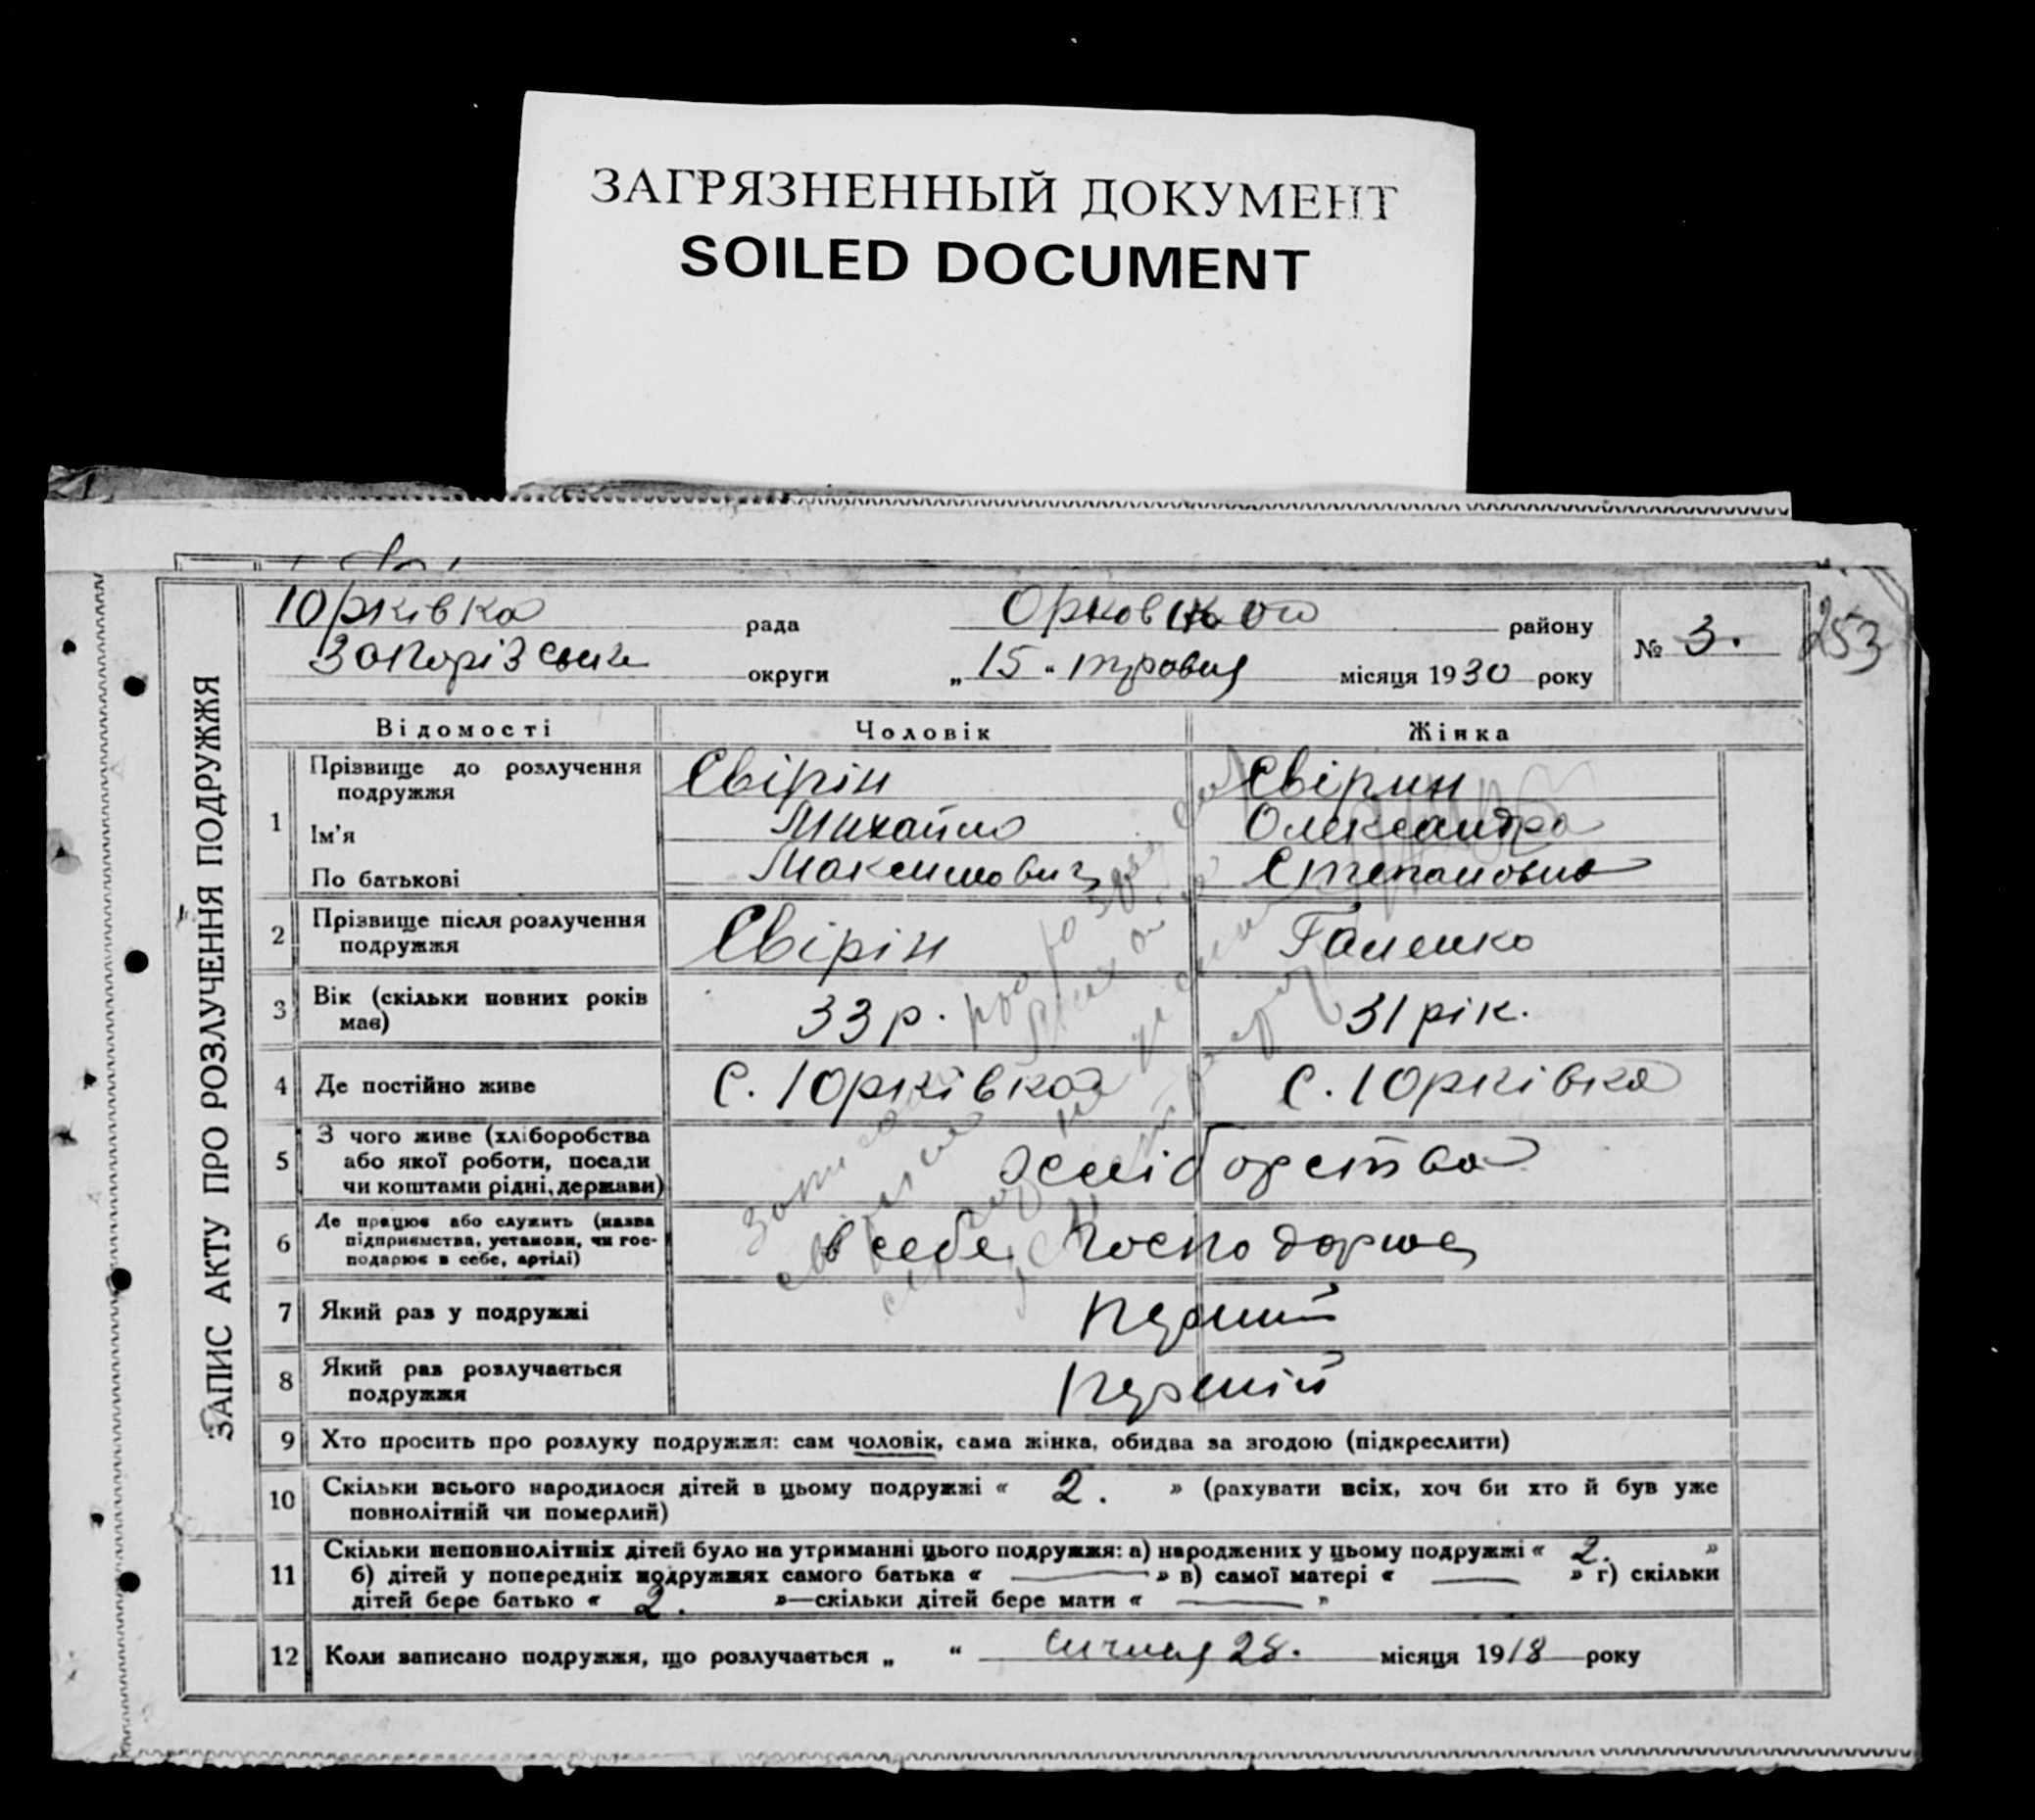 ЗАГРЯЗНЕННЫЙ ДОКУМЕНТ
SOILED DOCUMENT
ЗАПИС АКТУ ПРО РОЗЛУЧЕННЯ ПОДРУЖЖЯ
Юрківка рада району № 3. 253
округи „ 15 “ травня місяця 1930 року
Відомості Чоловік Жінка
1 Прізвище до розлучення подружжя Свірін Свірин
Ім'я Михайло Олександра
По батькові Максимович Степановна
2 Прізвище після розлучення подружжя Свірін Галенко
3 Вік (скільки повних років має) 33 р. 31 рік.
4 Де постійно живе С. Юрківка С. Юрківка
5 З чого живе (хліборобства або якої роботи, посади чи коштами рідні, держави)
6 Де працює або служить (назва підприємства, установи, чи господарює в себе, артілі) в себе
7 Який раз у подружжі перший
8 Який раз розлучається подружжя перший
9 Хто просить про розлуку подружжя: сам чоловік, сама жінка, обидва за згодою (підкреслити)
10 Скільки всього народилося дітей в цьому подружжі « 2. » (рахувати всіх, хоч би хто й був уже
повнолітній чи померлий)
11 Скільки неповнолітніх дітей було на утриманні цього подружжя: а) народжених у цьому подружжі « 2. »
б) дітей у попередніх подружжях самого батька « — » в) самої матері « — » г) скільки
дітей бере батько « 2. »—скільки дітей бере мати « — »
12 Коли записано подружжя, що розлучається „ “ Січня 28. місяця 1918 року